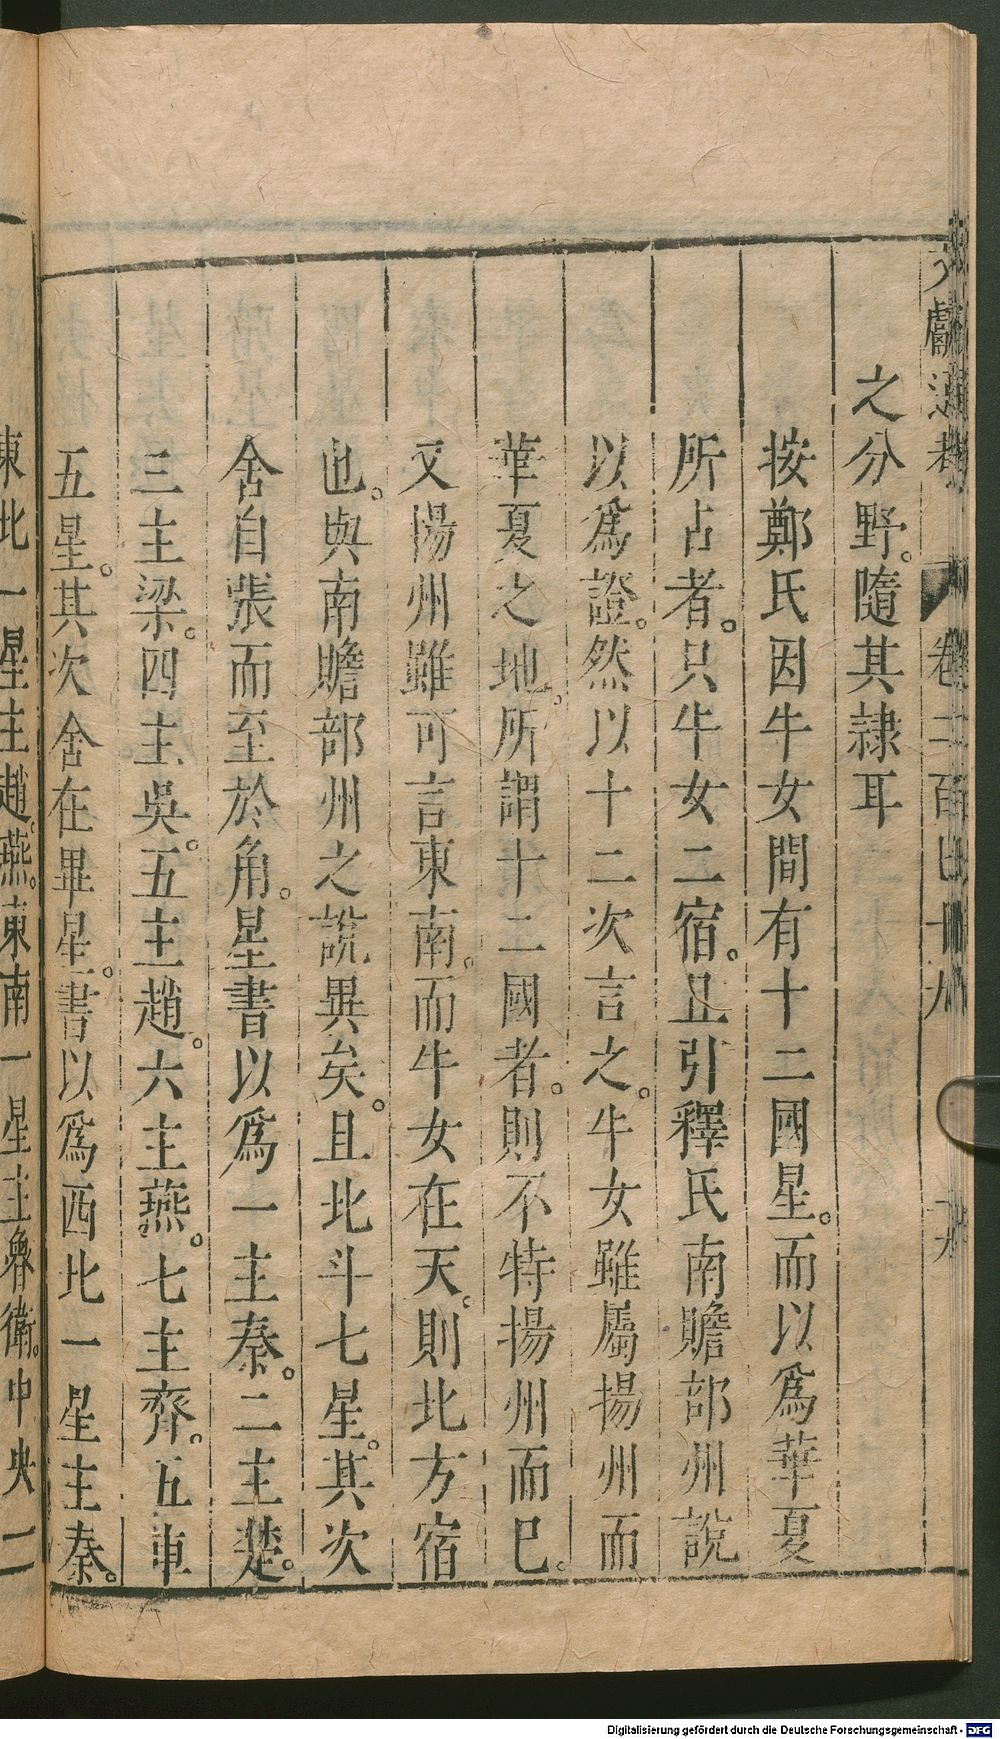 之分野。隨其隷耳
按鄭氏因牛女間有十二國星。而以爲華夏
所占者。只牛女二宿。且引釋氏南贍部州說
以爲證。然以十二次言之。牛女雖屬揚州而
華夏之地。所謂十二國者。則不特揚州而已。
又揚州雖可言東南。而牛女在天。則北方宿
也。與南贍部州之說異矣。且北斗七星。其次
舍自張而至於角。星書以爲一主秦。二主楚。
三主梁。四主吳。五主趙。六主燕。七主齊。五車
五星。其次舍在畢星。書以爲西北一星主秦。
東北一星主趙。燕。東南一星主魯衛。中央一
Digitalisierung gefördert durch die Deutsche Forschungsgemeinschaft - DFG